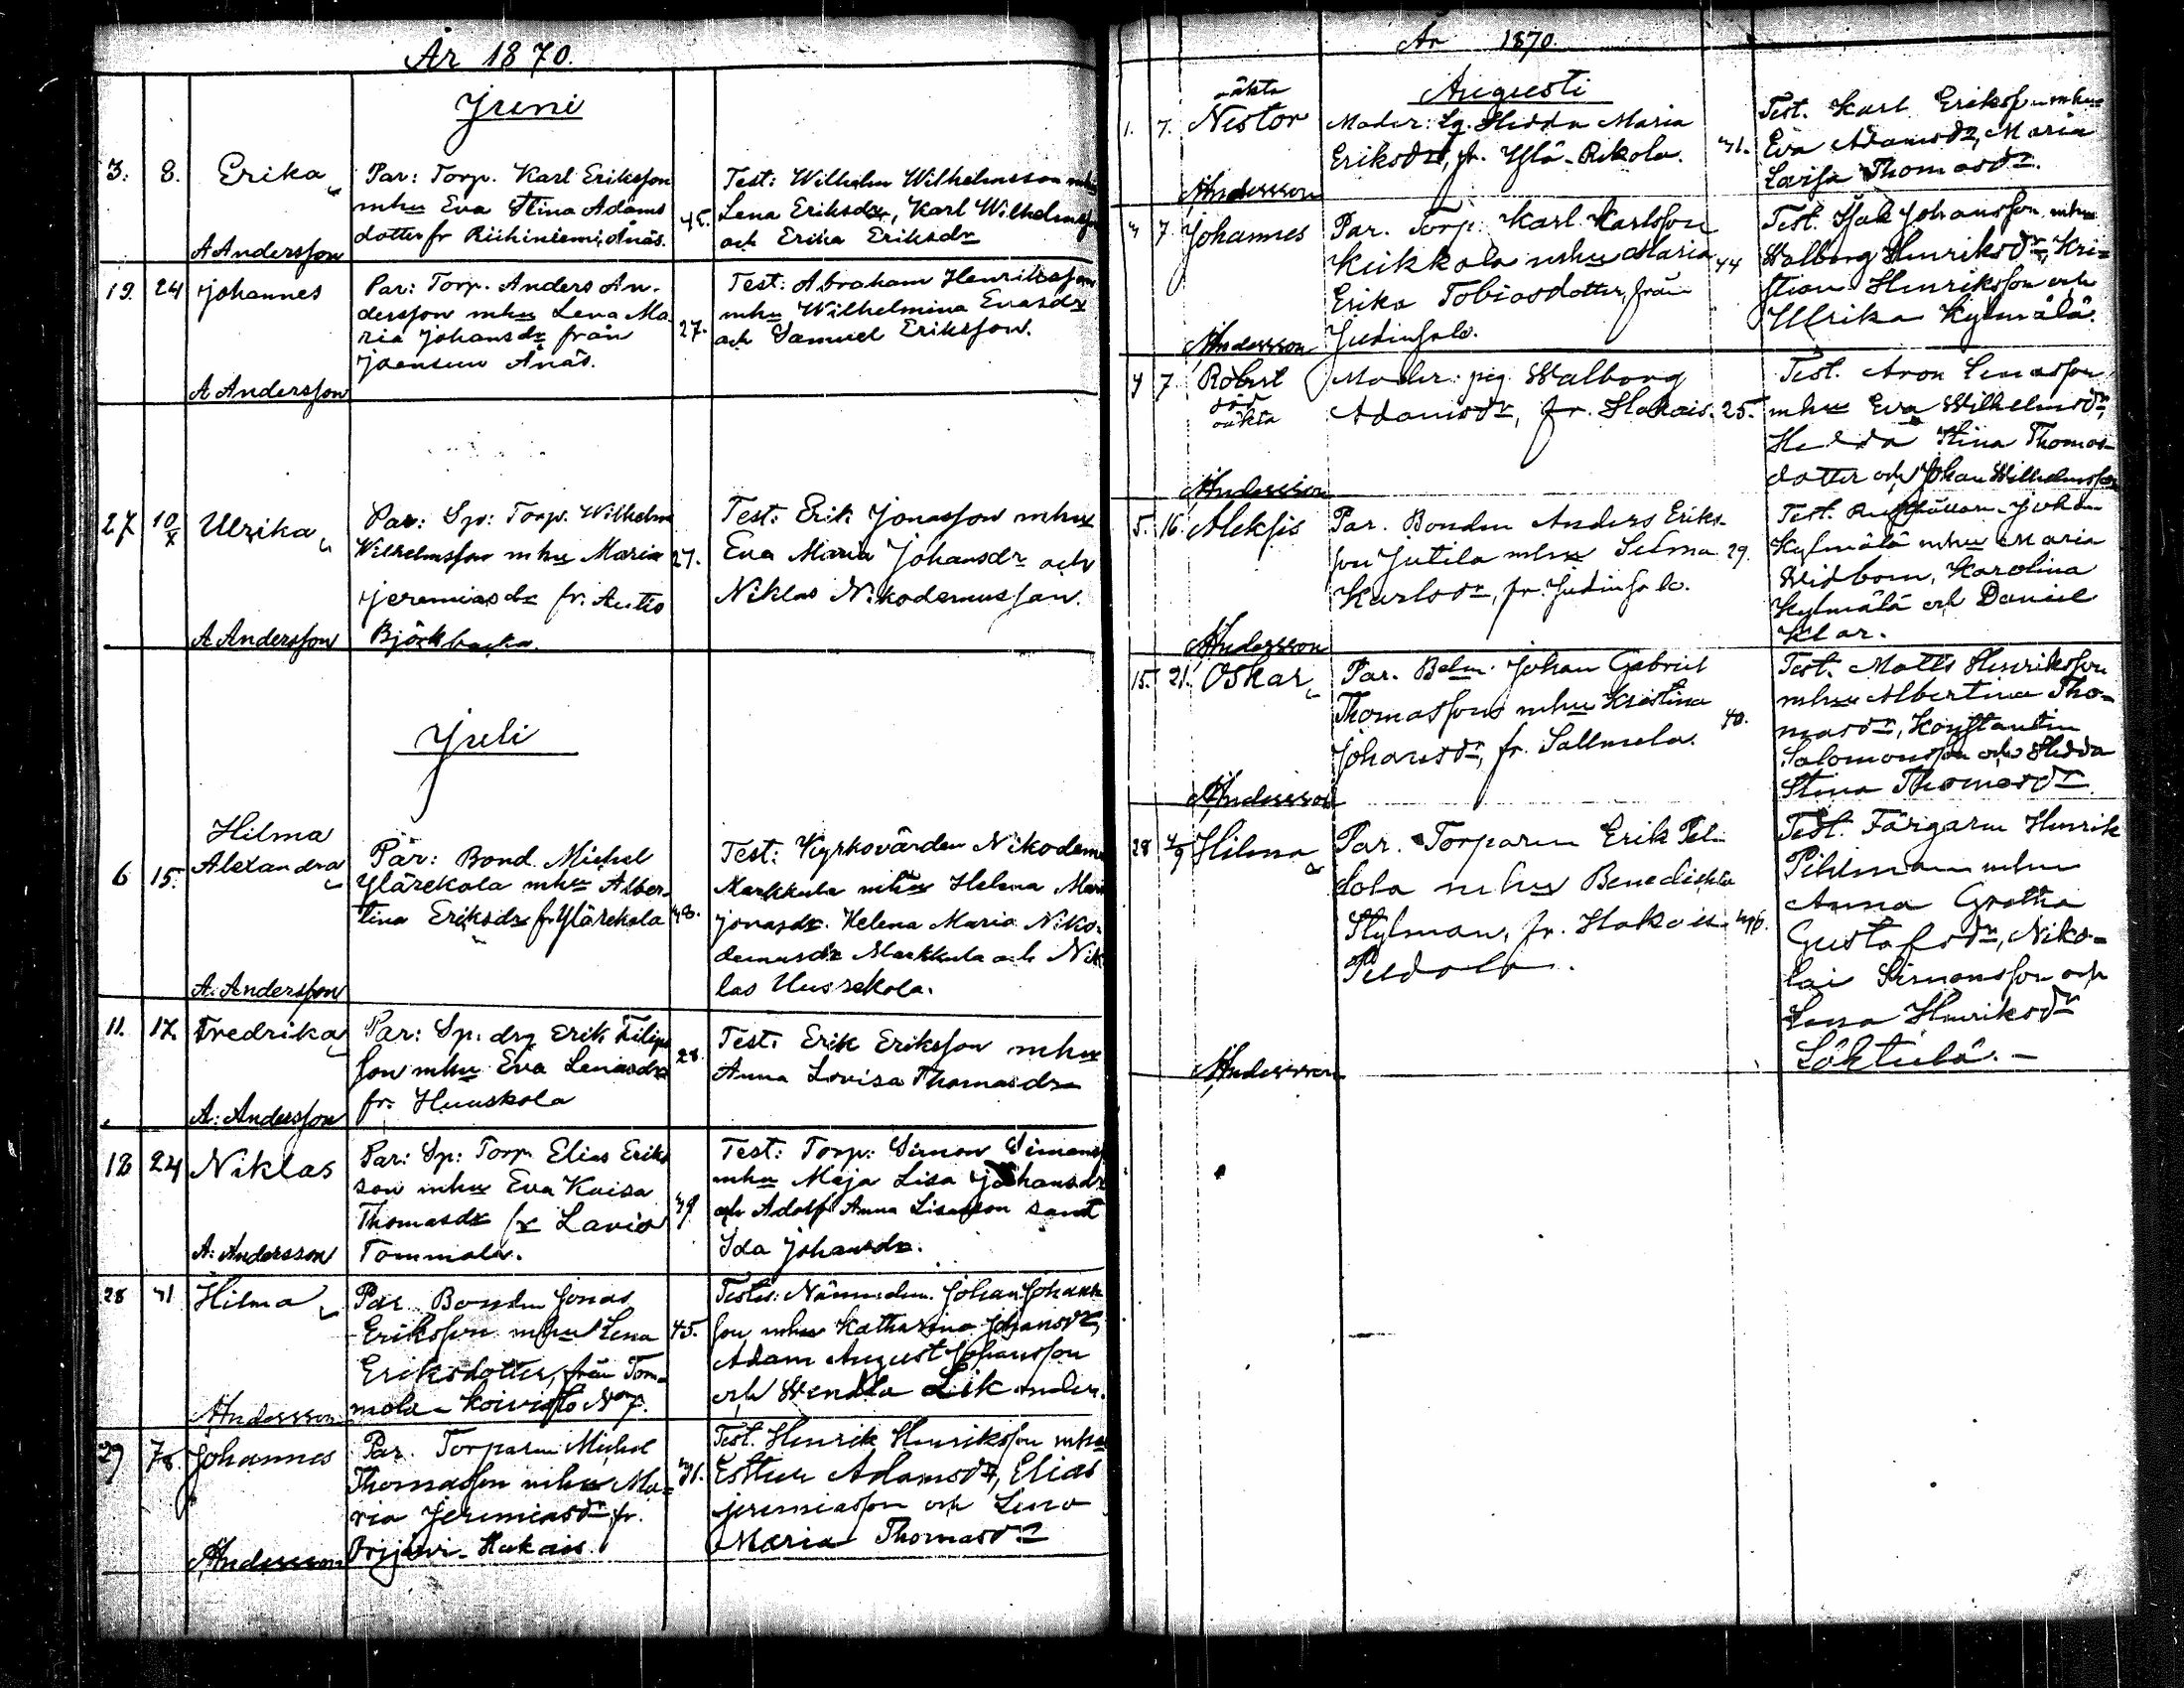 År 1870.
Juni
3. 8. Erika
Par: Torp. Karl Eriksson
mhu Eva Stina Adams
dotter fr Riihiniemi, Ånäs.
45.
Test: Wilhelm Wilhelmsson mhu
Lena Eriksdr, Karl Wilhelmsson
och Erika Eriksdr
A Andersson
19. 24 Johannes
Par: Torp. Anders An-
dersson mhu Lena Ma
ria Johansdr från
Joensuu Ånäs.
27.
Test: Abraham Henriksson
mhu Wilhelmina Evasdr
och Samuel Eriksson.
A Andersson
27 10/X Ulrika
Par: Sp: Torp. Wilhelm
Wilhelmsson mhu Maria
Jeremiasdr fr. Autio
Björkbacka.
27.
Test: Erik Jonasson mhu
Eva Maria Johansdr och
Niklas Nikodemusson.
A Andersson
Juli
6 15. Hilma
Alexandra
Par: Bond. Michel
Ylärekola mhu Alber-
tina Eriksdr fr. Ylärekola
43.
Test: Kyrkovärden Nikodem
Markkula mhu Helena Mari
Jonasdr. Helena Maria Niko-
demusdr Markkula och Nik
las Uusrekola.
A. Andersson
11. 17. Fredrika
Par: Sp. drg Erik Filips
son mhu Eva Lenasdr
fr. Huuskola
28.
Test: Erik Eriksson mhu
Anna Lovisa Thomasdr
A: Andersson
18 24 Niklas
Par: Sp: Torp. Elias Eriks
son mhu Eva Kaisa
Thomasdr fr Lavio
Tommola.
49
Test: Torp: Simon Simans
mhu Maja Lisa Johansdr
och Adolf Anna Lisasson samt
Ida Johansdr.
A: Andersson
28 31 Hilma
Par. Bonden Jonas
Eriksson mhu Lena
Eriksdotter, från Tom-
mola-Koivisto No 7.
45.
Testes: Nämndem. Johan Johans
son mhu Katharina Johansdr,
Adam August Johansson
och Wendla Likander.
Andersson
29 7/8. Johannes
Par. Torparen Michel
Thomasson mhu Ma-
ria Jeremiasdr, fr.
Orijärvi-Hakais.
31.
Test. Henrik Henriksson mhu
Esther Adamsdr, Elias
Jeremiasson och Lena
Maria Thomasdr
Andersson
År 1870.
Augusti
1. 7. oäkta
Nestor
Moder: Lg. Hedda Maria
Eriksdr, fr. Ylä-Rekola.
41.
Test. Karl Eriksson mhu
Eva Adamsdr, Maria
Lovisa Thomasdr.
Andersson
4 7 Johannes
Par. Torp. Karl Karlsson
Kukkola mhu Maria
Erika Tobiasdotter, från
Judinsalo.
44
Test. Isak Johansson mhu
Walborg Henriksdr, Kri-
stian Henriksson och
Ulrika Kylmälä.
Andersson
4 7 Robert
död
oäkta
Moder: pig. Walborg
Adamsdr, fr. Hakais.
25.
Test. Aron Lenasson
mhu Eva Wilhelmsdr,
Hedda Stina Thomas-
dotter och Johan Wilhelmsson
Andersson
5. 16. Aleksis
Par. Bonden Anders Eriks-
son Jutila mhu Selma
Karlsdr, fr. Judinsalo.
29.
Test. Johan
Kylmälä mhu Maria
Widbom, Karolina
Kylmälä och Daniel
Klar.
Andersson
15. 21. Oskar
Par. Belm. Johan Gabriel
Thomasson mhu Kristina
Johansdr, fr. Sallmela.
40.
Test. Matts Henriksson
mhu Albertina Tho-
masdr, Konstantin
Salomonsson och Hedda
Stina Thomasdr
Andersson
28 4/9 Hilma
Par. Torparen Erik Pel-
dola mhu Benedikta
Stylman, fr. Hakais-
Peldola.
Test. Färgaren Henrik
Pihlman mhu
Anna Gretha
Gustafsdr, Niko-
lai Simonsson och
Lena Henriksdr
Löktulä.-
Andersson